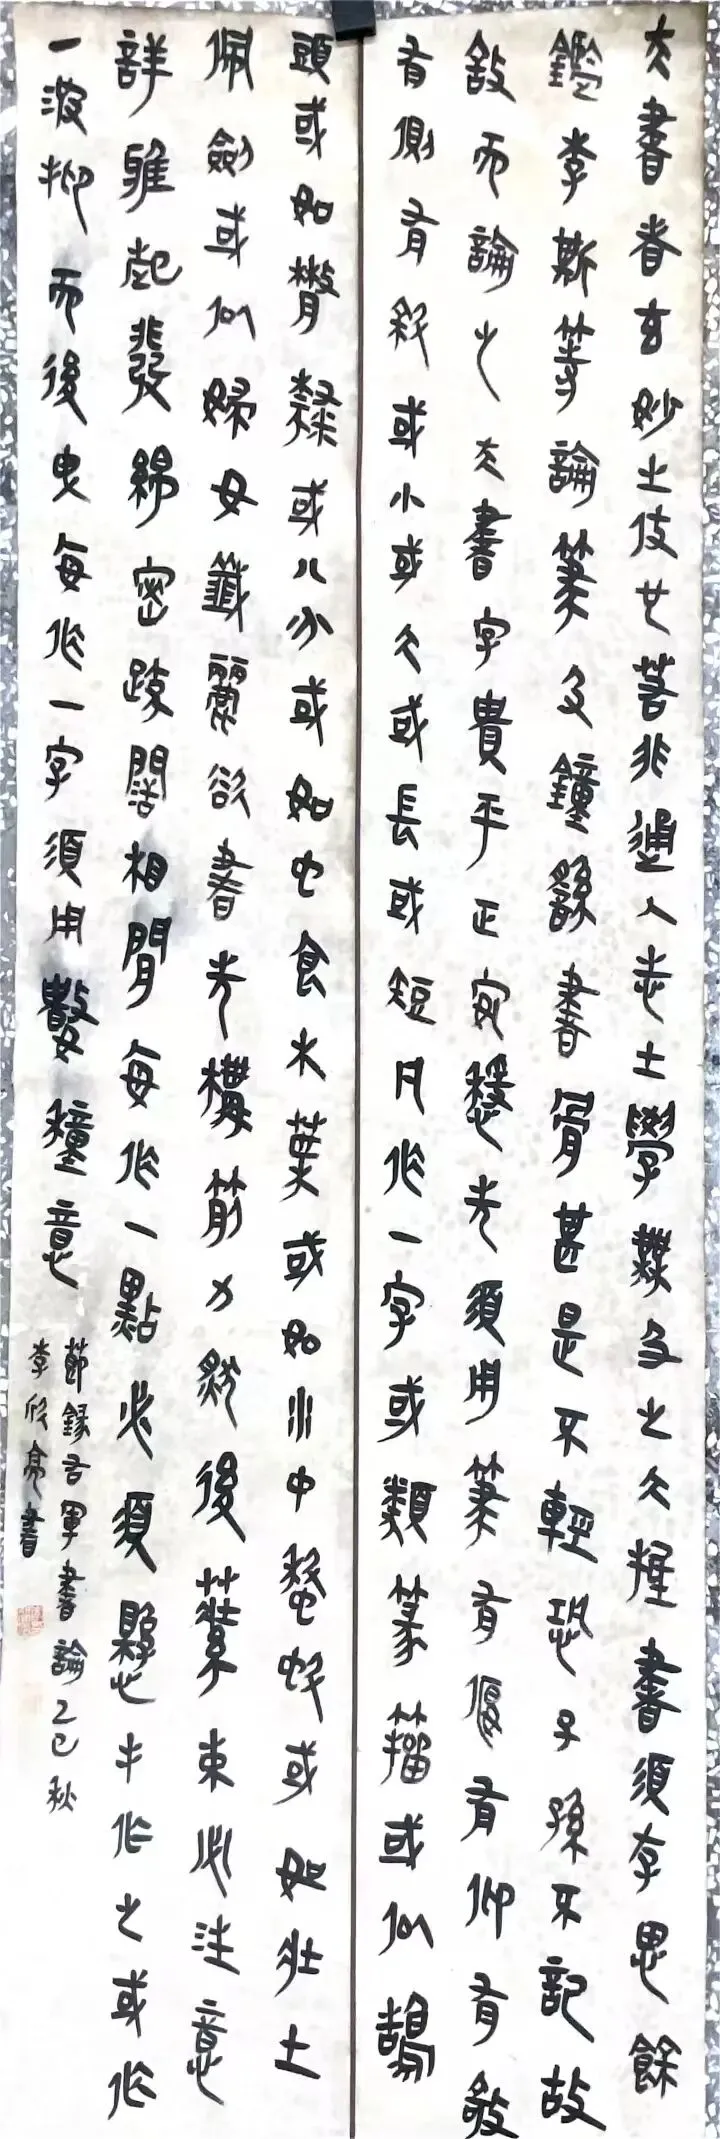 夫書者玄妙之伎也若非通人志士學無及之大抵書須存思余
鑑李斯等論篆及鍾繇書骨甚是不輕恐子孫不記故
敘而論之夫書字貴平正安穩先須用筆有偃有仰有欹
有側有斜或小或大或長或短凡作一字或類篆籀或似鵠
頭或如散隸或八分或如虫食木葉或如水中蝌蚪或如壯士
佩劍或似婦女纖麗欲書先構筋力然後裝束必注意
詳雅起發綿密疎闊相間每作一點必須懸手作之或作
一波抑而後曳每作一字須用數種意
節錄右軍書論乙巳秋
李欣亮書